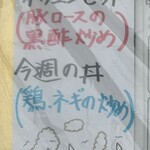 (豚ロースの
黒酢炒め)
今週の丼
(鶏、ネギの炒め)